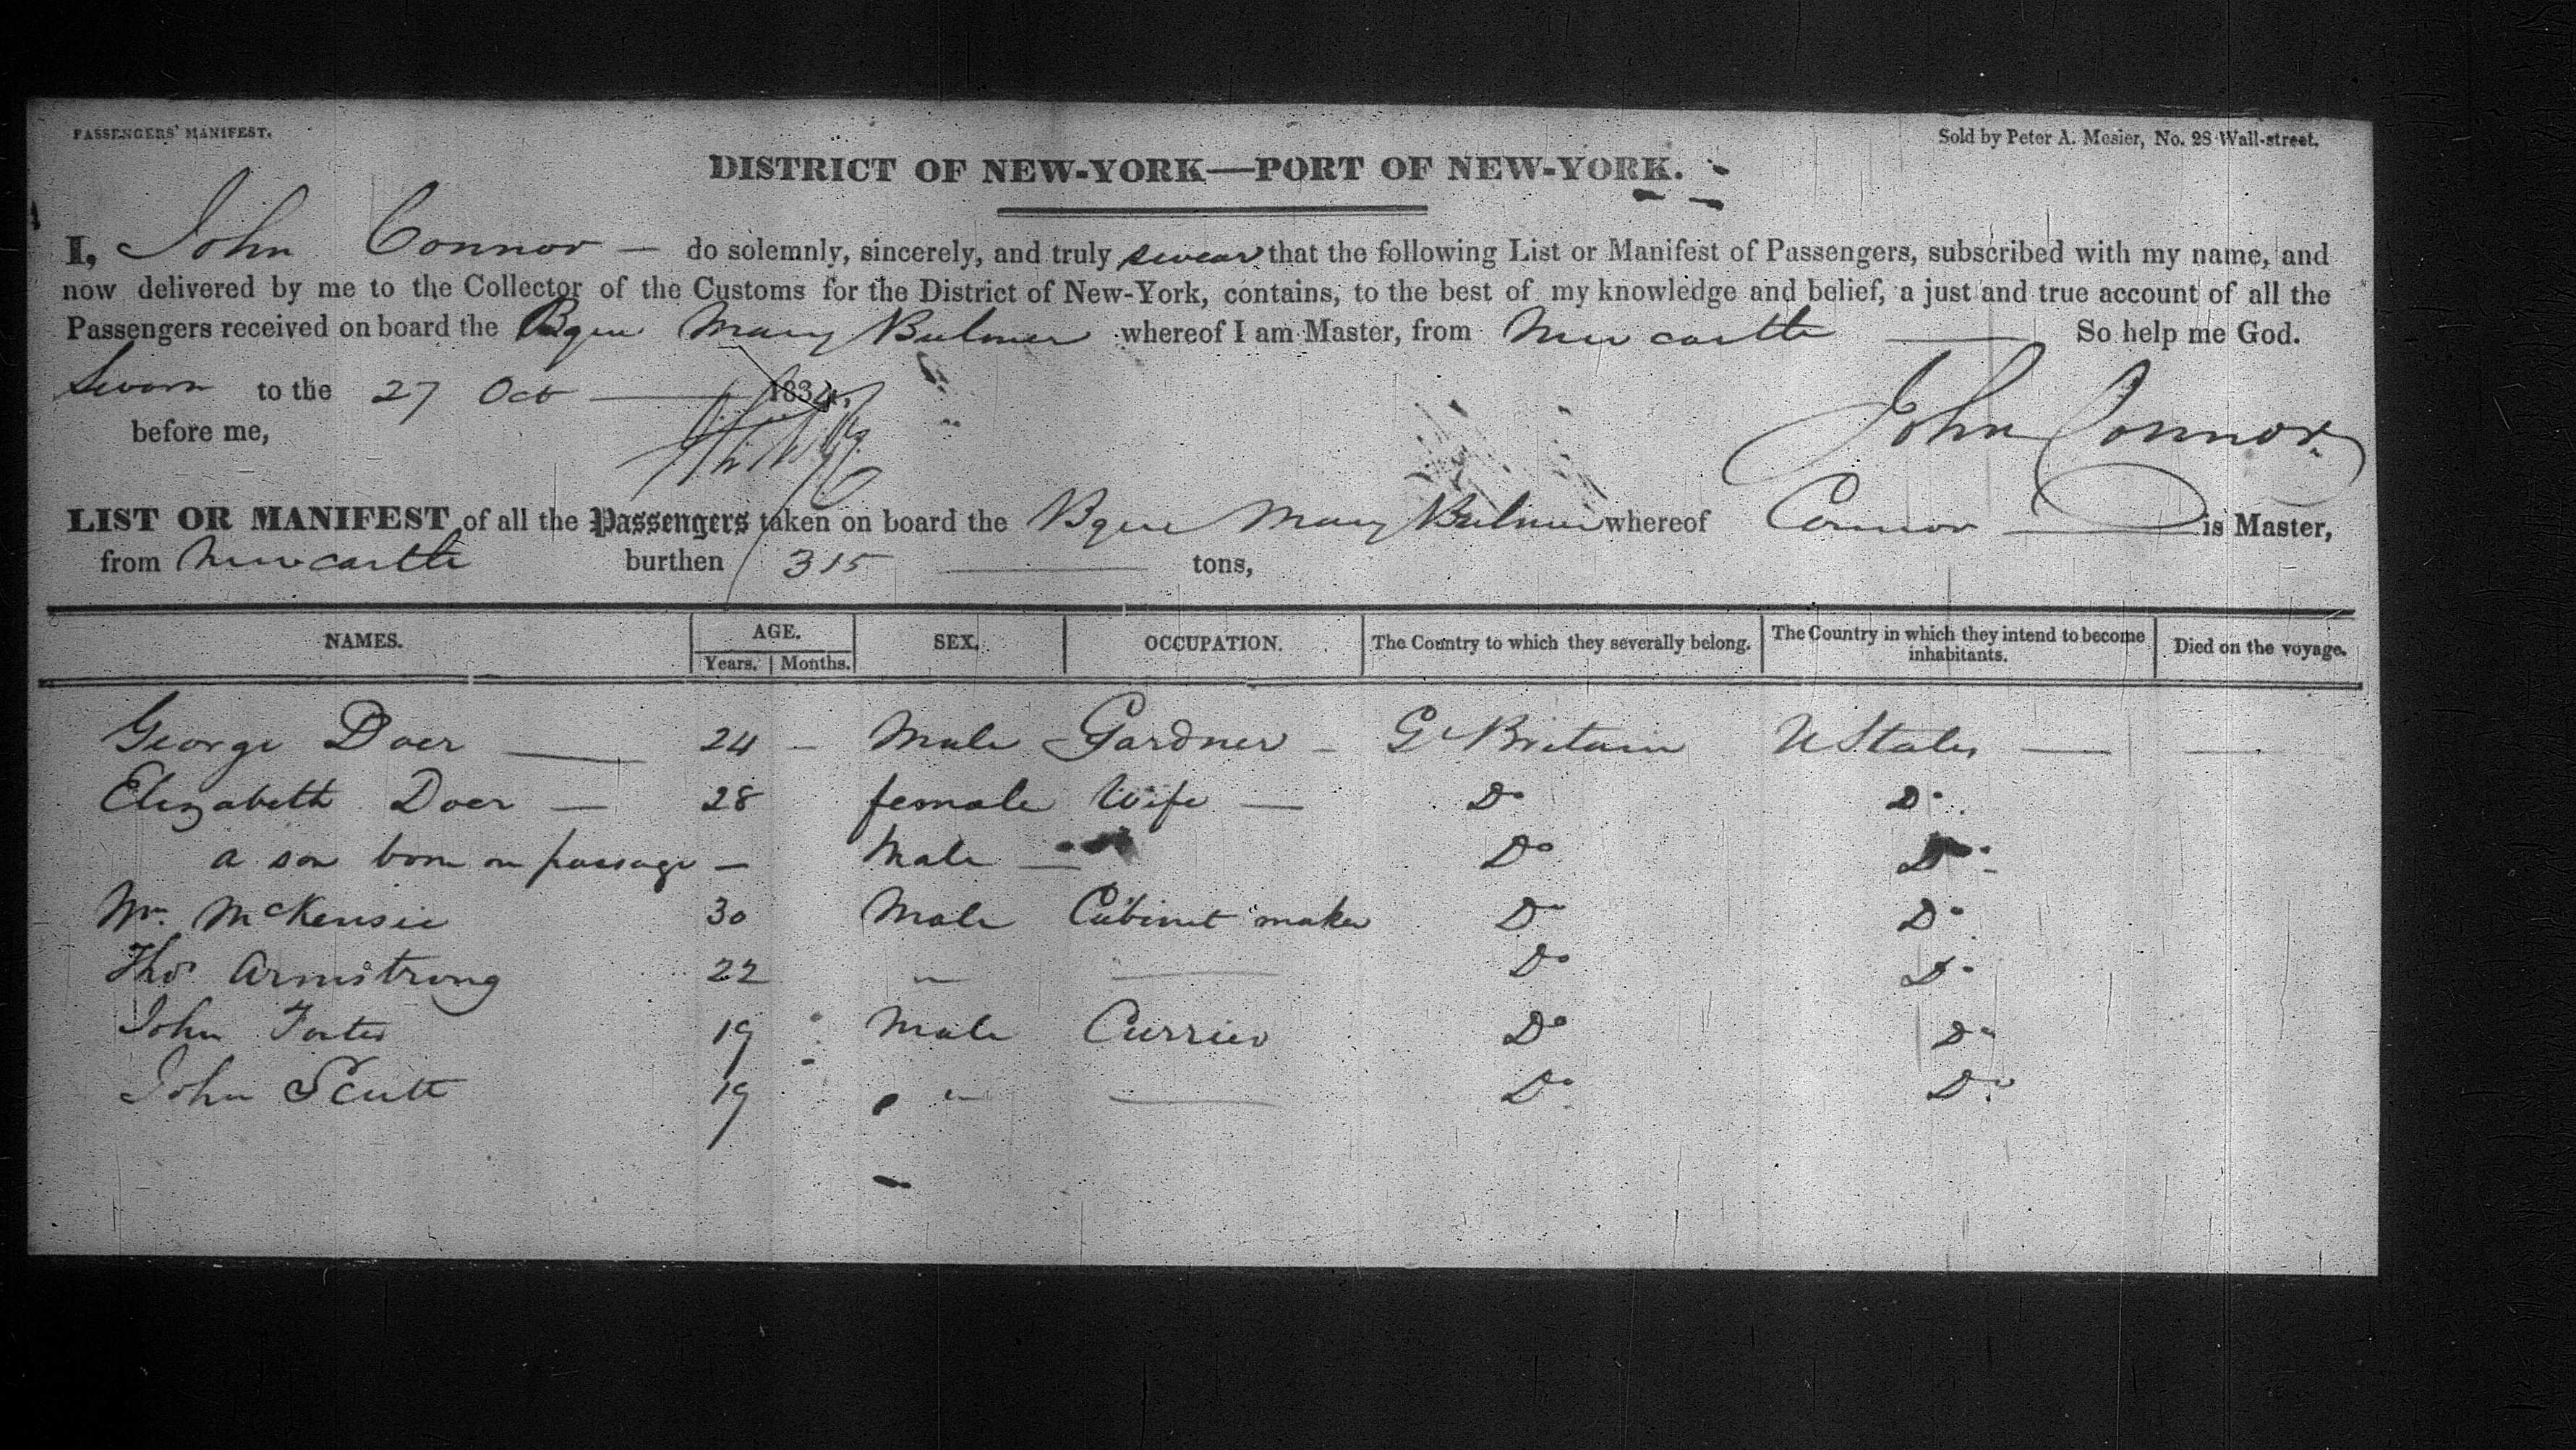 PASSENGERS' MANIFEST.
Sold by Peter A. Mesier, No. 28 Wall-street.
DISTRICT OF NEW-YORK—PORT OF NEW-YORK.
I, John Connor — do solemnly, sincerely, and truly swear that the following List or Manifest of Passengers, subscribed with my name, and
now delivered by me to the Collector of the Customs for the District of New-York, contains, to the best of my knowledge and belief, a just and true account of all the
Passengers received on board the Bque Mary Bulmer whereof I am Master, from Newcastle — So help me God.
Sworn to the 27 Oct — 1834.
before me,
John Connor
LIST OR MANIFEST of all the Passengers taken on board the Bque Mary Bulmer whereof Connor — is Master,
from Newcastle burthen 315 — tons,
NAMES. AGE. Years. Months. SEX. OCCUPATION. The Country to which they severally belong. The Country in which they intend to become inhabitants. Died on the voyage.
George Doer — 24 — Male Gardner — Gt Britain U States — —
Elizabeth Doer — 28 female Wife — Do Do
a son born on passage — Male — Do Do
Wm. McKensie 30 Male Cabinet maker Do Do
Thos Armstrong 22 " — Do Do
John 19 Male Currier Do Do
John 19 " — Do Do